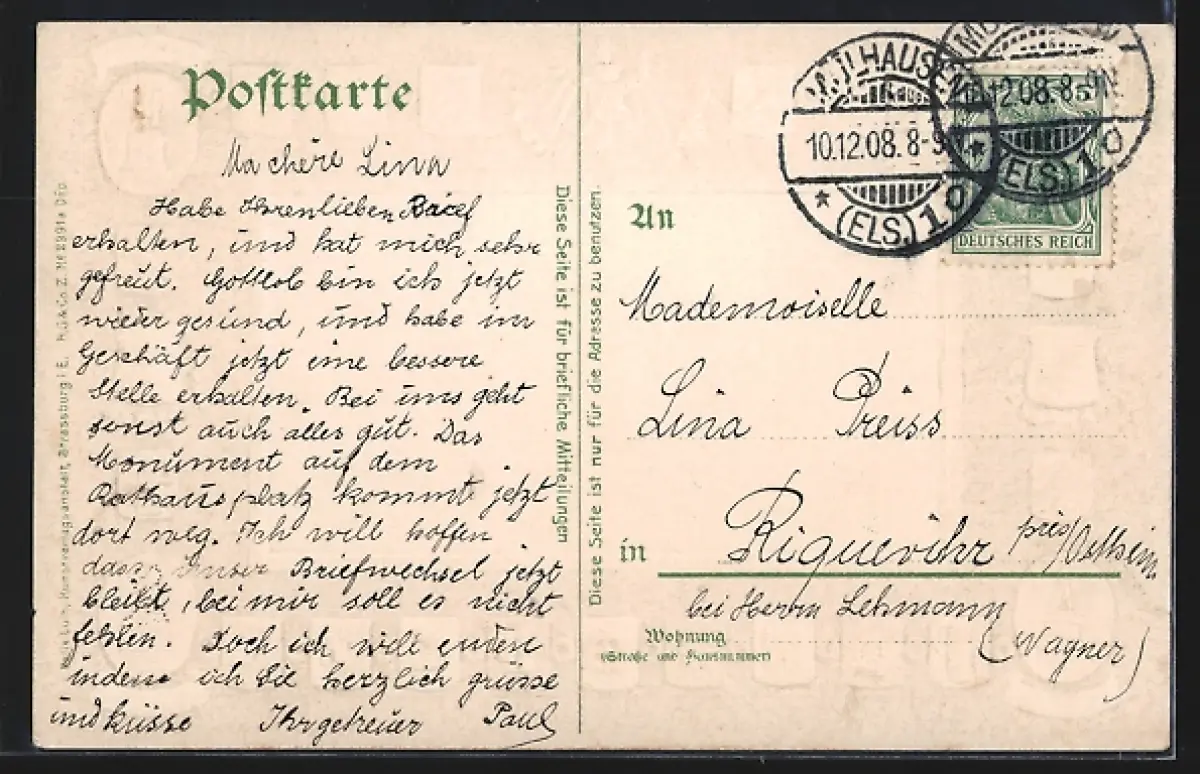 Postkarte
Ma chère Lina
Habe Ihren lieben Brief
erhalten, und hat mich sehr
gefreut. Gottlob bin ich jetzt
wieder gesund, und habe im
Geschäft jetzt eine bessere
Stelle erhalten. Bei uns geht
sonst auch alles gut. Das
Monument auf dem
Rathausplatz kommt jetzt
dort weg. Ich will hoffen
dass unser Briefwechsel jetzt
bleibt, bei mir soll es nicht
fehlen. Doch ich will enden
indem ich Sie herzlich grüsse
und küsse Ihr getreuer Paul
Kunstverlagsanstalt, Strassburg i E.
Diese Seite ist für briefliche Mitteilungen
Diese Seite ist nur für die Adresse zu benutzen.
MÜLHAUSEN
10.12.08. 8-9N.
* (ELS.) 10
10.12.08. 8-9N.
* (ELS.) 10
DEUTSCHES REICH
An
Mademoiselle
Lina Preiss
in Riquevihr près/Ostheim
bei Herrn Lehmann
(Wagner)
Wohnung
(Straße und Hausnummer)